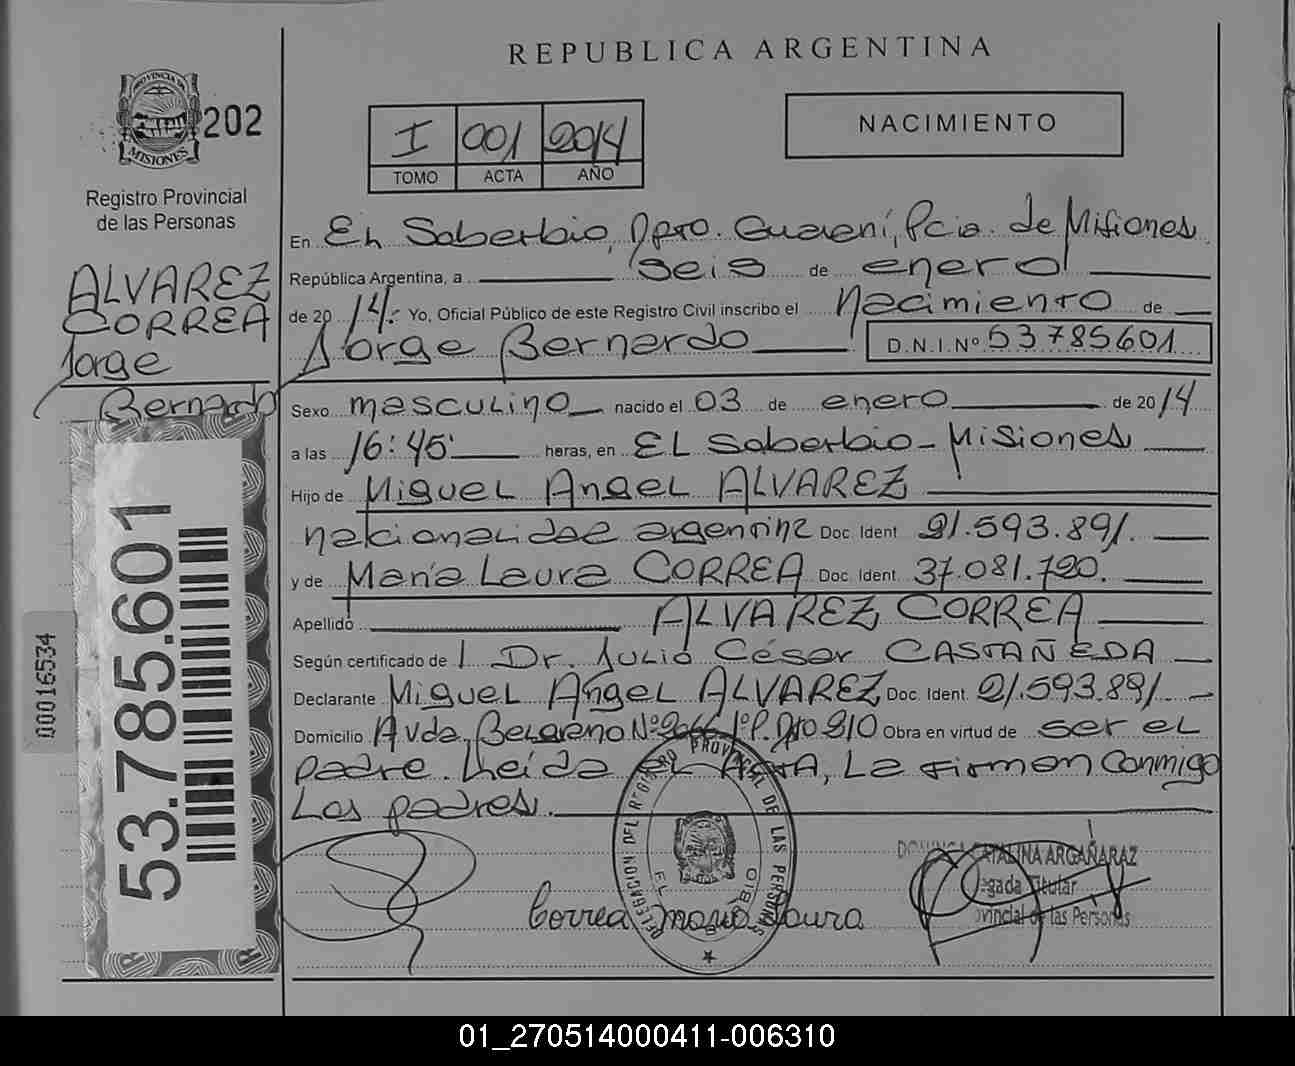 REPUBLICA ARGENTINA
PROVINCIA DE
MISIONES
202
Registro Provincial
de las Personas
I 001 2014
TOMO ACTA AÑO
NACIMIENTO
ALVAREZ
CORREA
Jorge
Bernardo
53.785.601
00016534
En El Soberbio, Dpto. Guaraní, Pcia. de Misiones
República Argentina, a seis de enero
de 2014. Yo, Oficial Público de este Registro Civil inscribo el Nacimiento de
Jorge Bernardo D.N.I.Nº 53785601
Sexo masculino nacido el 03 de enero de 2014
a las 16:45 horas, en EL Soberbio - Misiones
Hijo de Miguel Angel ALVAREZ
nacionalidad argentina Doc. Ident. 21.593.891.
y de María Laura CORREA Doc. Ident. 37.081.720.
Apellido ALVAREZ CORREA
Según certificado de Dr. Julio César CASTAÑEDA
Declarante Miguel Angel ALVAREZ Doc. Ident. 21.593.891
Domicilio Avda. Belgrano Nº 1ºP. Dpto Obra en virtud de ser el
padre. Leída el ActA, La firman conmigo
Los padres.
DELEGACION DEL REGISTRO PROVINCIAL DE LAS PERSONAS
EL
Correa María Laura
CATALINA ARGAÑARAZ
Titular
de las Personas
01_270514000411-006310